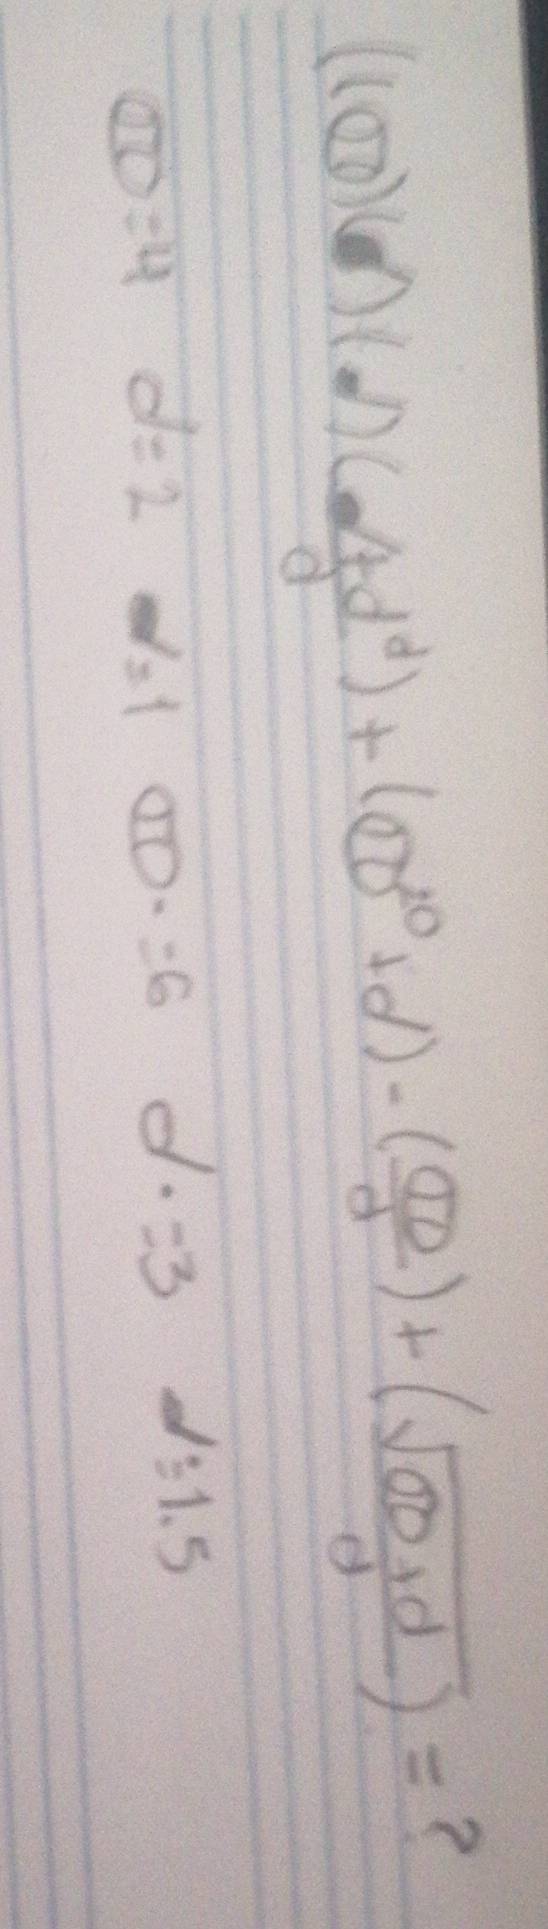 ((𝅝)(♩)(♩)(♩+𝅗𝅥^𝅗𝅥)+(𝅝^20+𝅗𝅥)-(𝅝)+(√𝅝+𝅗𝅥)=?
𝅗𝅥 𝅗𝅥 𝅗𝅥
𝅝=4 𝅗𝅥=2 ♩=1 𝅝.=6 𝅗𝅥.=3 ♩.=1.5